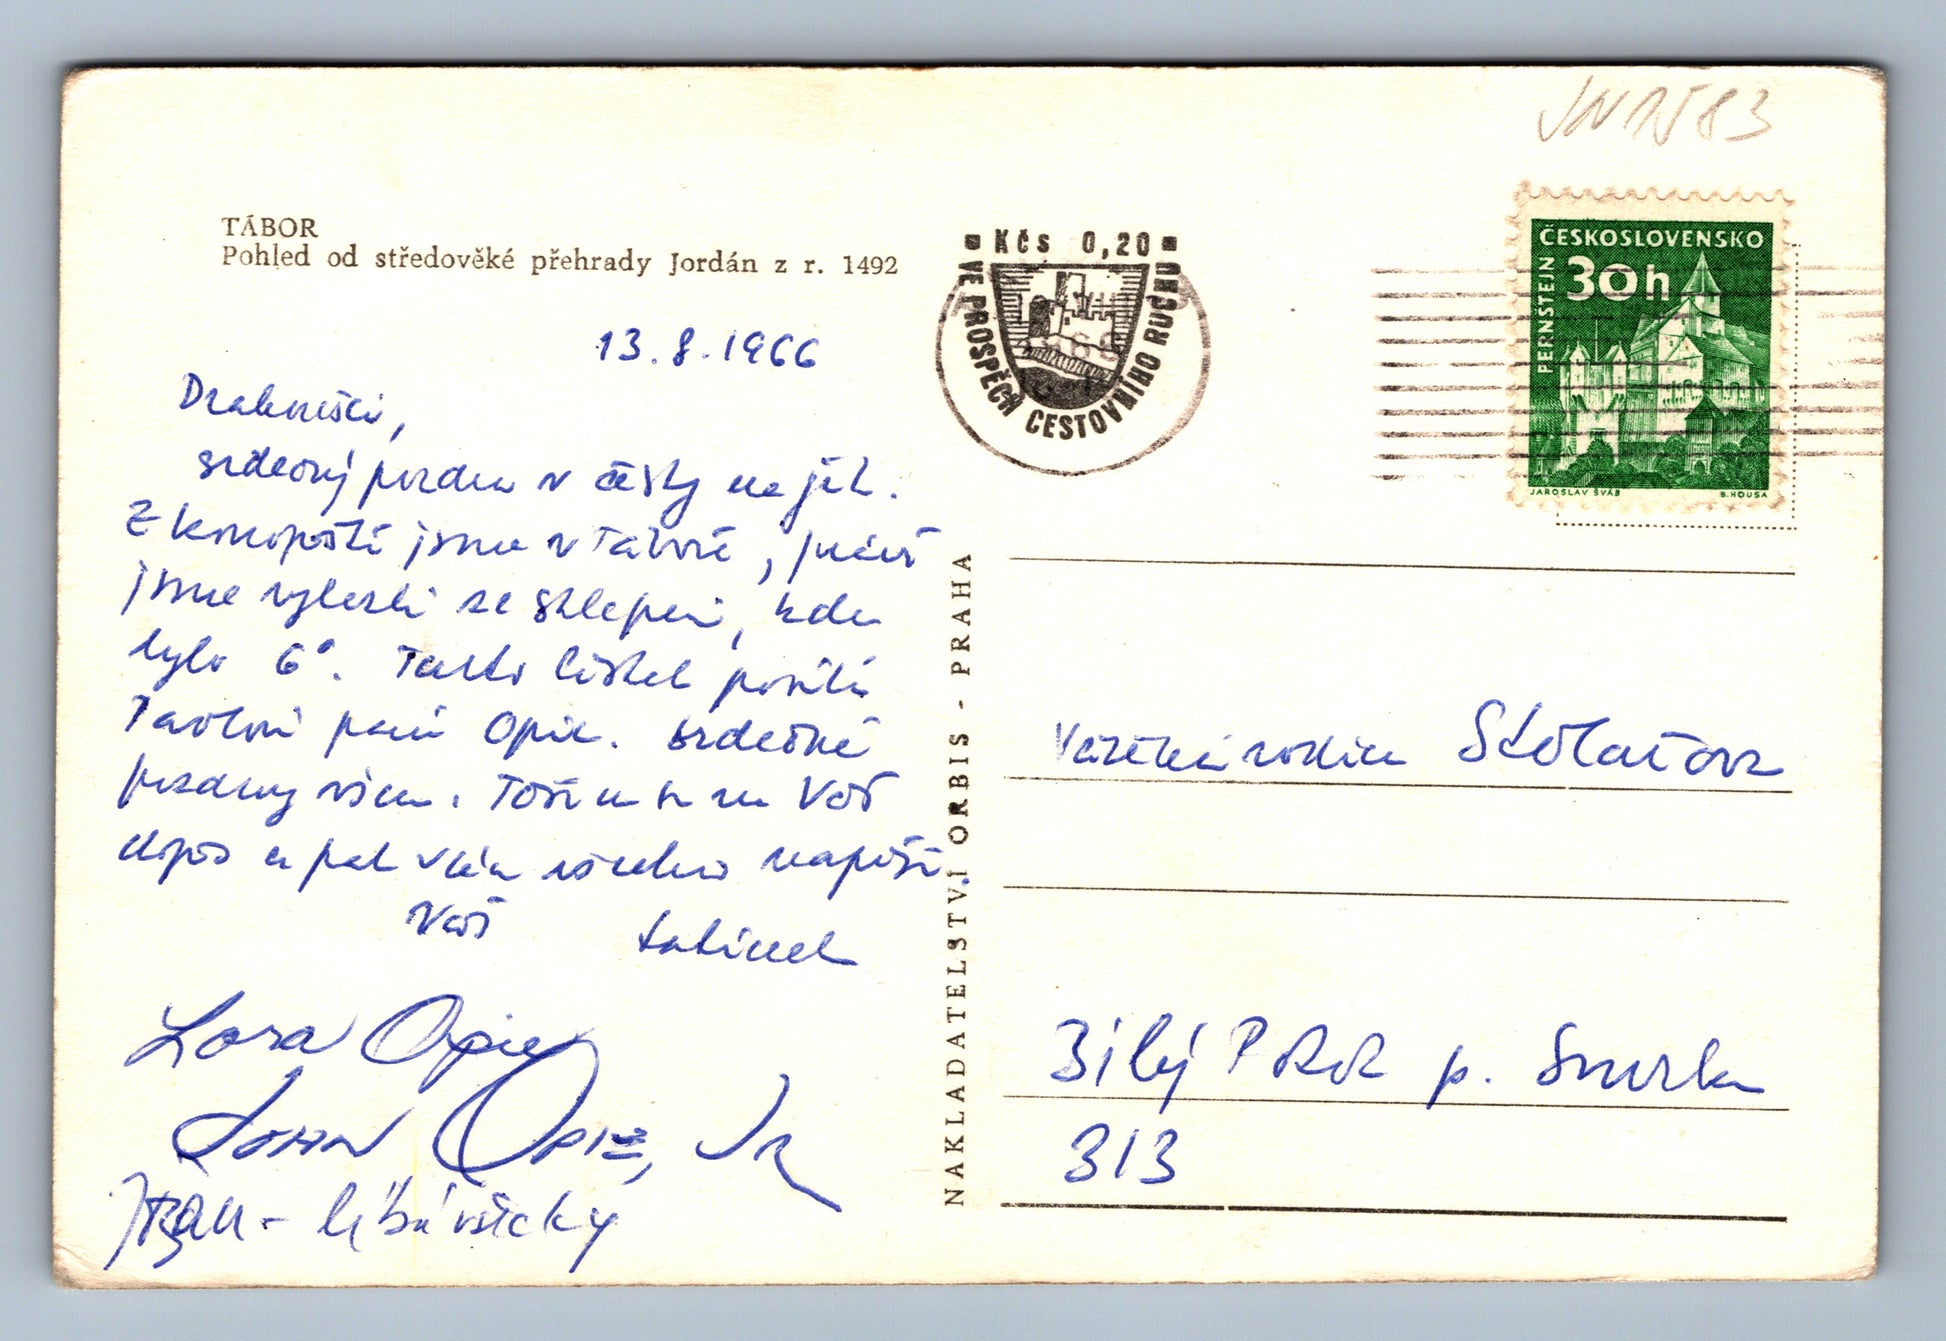 JN1583
TÁBOR
Pohled od středověké přehrady Jordán z r. 1492
Kčs 0,20
VE PROSPĚCH CESTOVNÍHO RUCHU
ČESKOSLOVENSKO
30h
PERNŠTEJN
JAROSLAV ŠVÁB B. HOUSA
13.8.1966
srdečný pozdrav v cesty na jih.
Z Konopiště jsme v Táboře, právě
jsme vylezli ze sklepení, kde
bylo 6°. Tento lístek posílá
paní Opie. Srdečné
pozdravy všem. Těším se na Váš
dopis a pak Vám všechno napíši.
Váš
Lora Opie
John Opie, Jr
- líbá všicky
NAKLADATELSTVÍ ORBIS - PRAHA
Vážená rodina
Bílý Potok p. Smrkem
313